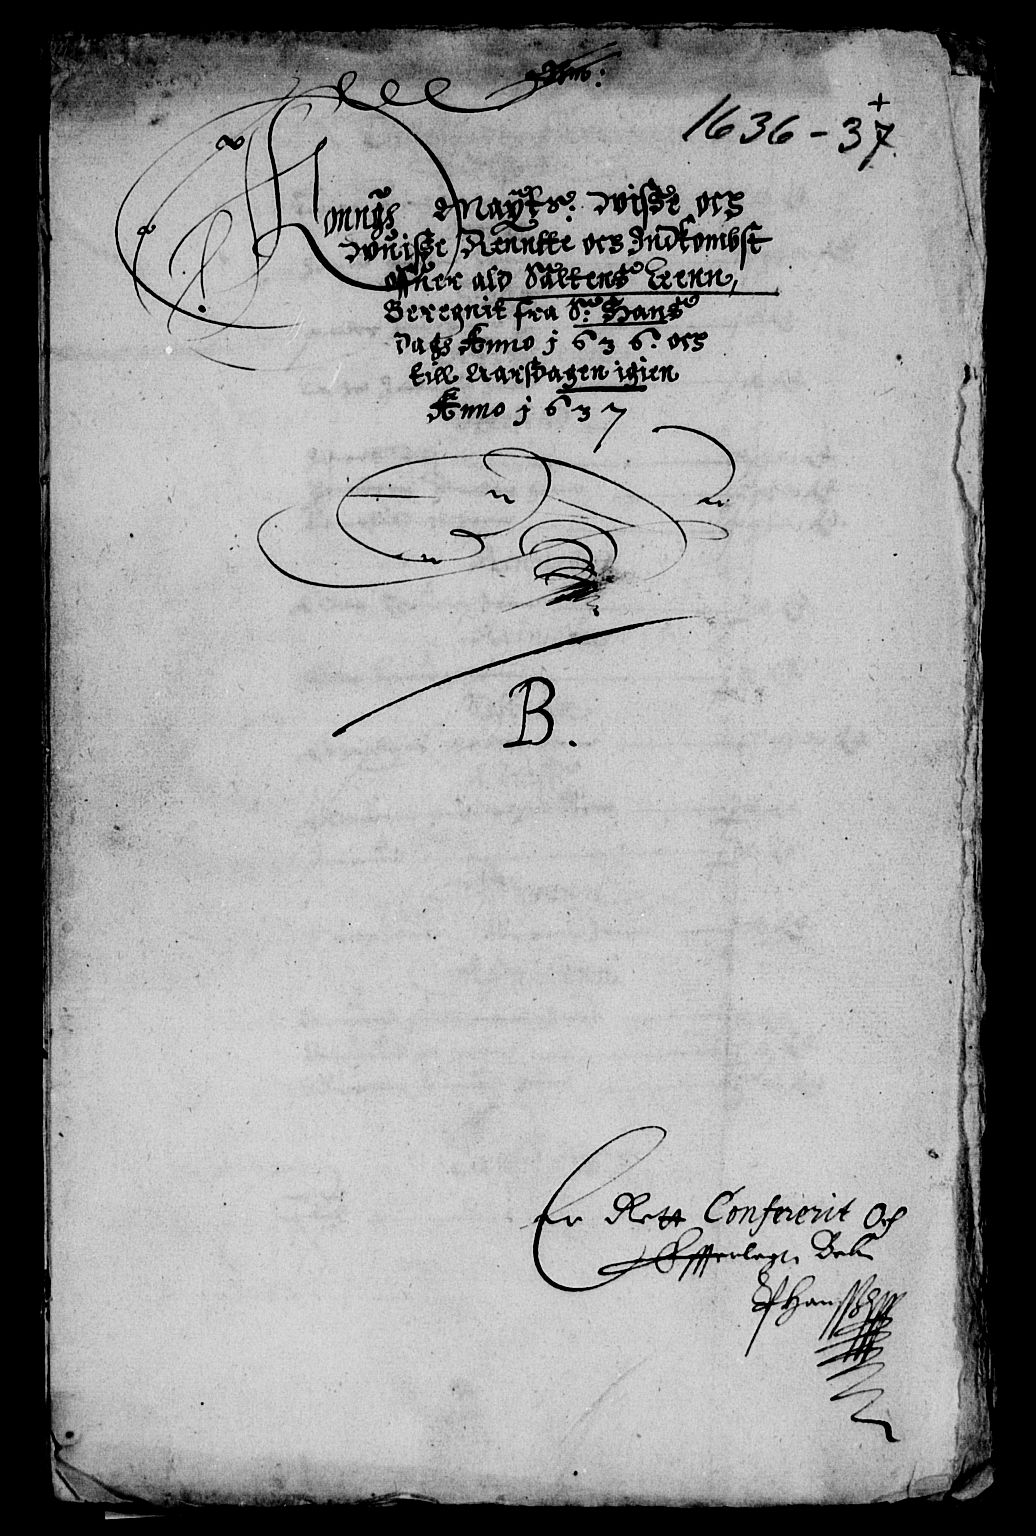 1636-37
Konngs Maytts: Wisse ocs
Wuisse Renntte ocs Indkombst
offuer ald Saltens Leenn,
Beregnit fra St: Hans
Dags Anno j636. ocs
till Aarsdagen igien
Anno j637
B.
Er Rett Confererit Och
Offuerlagt